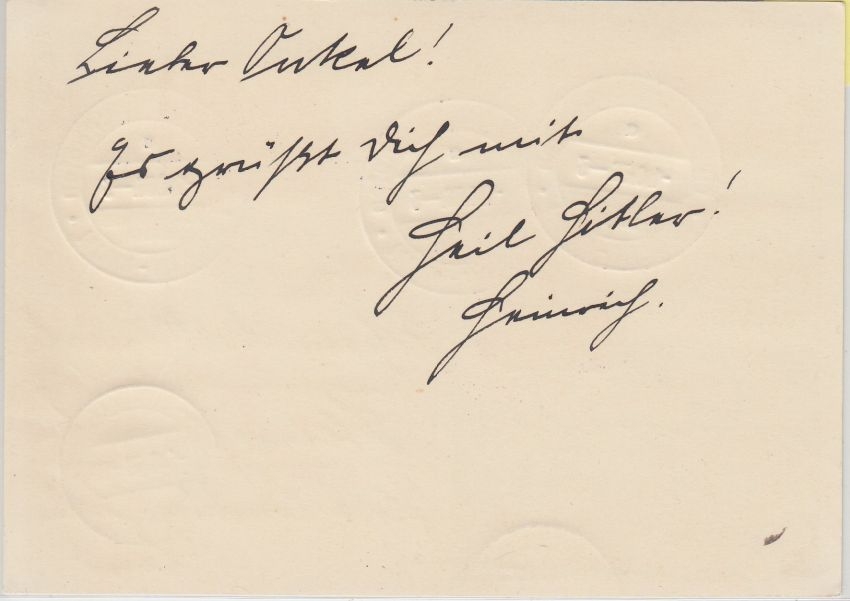 Lieber Onkel!
Es grüßt Dich mit
Heil Hitler!
Heinrich.